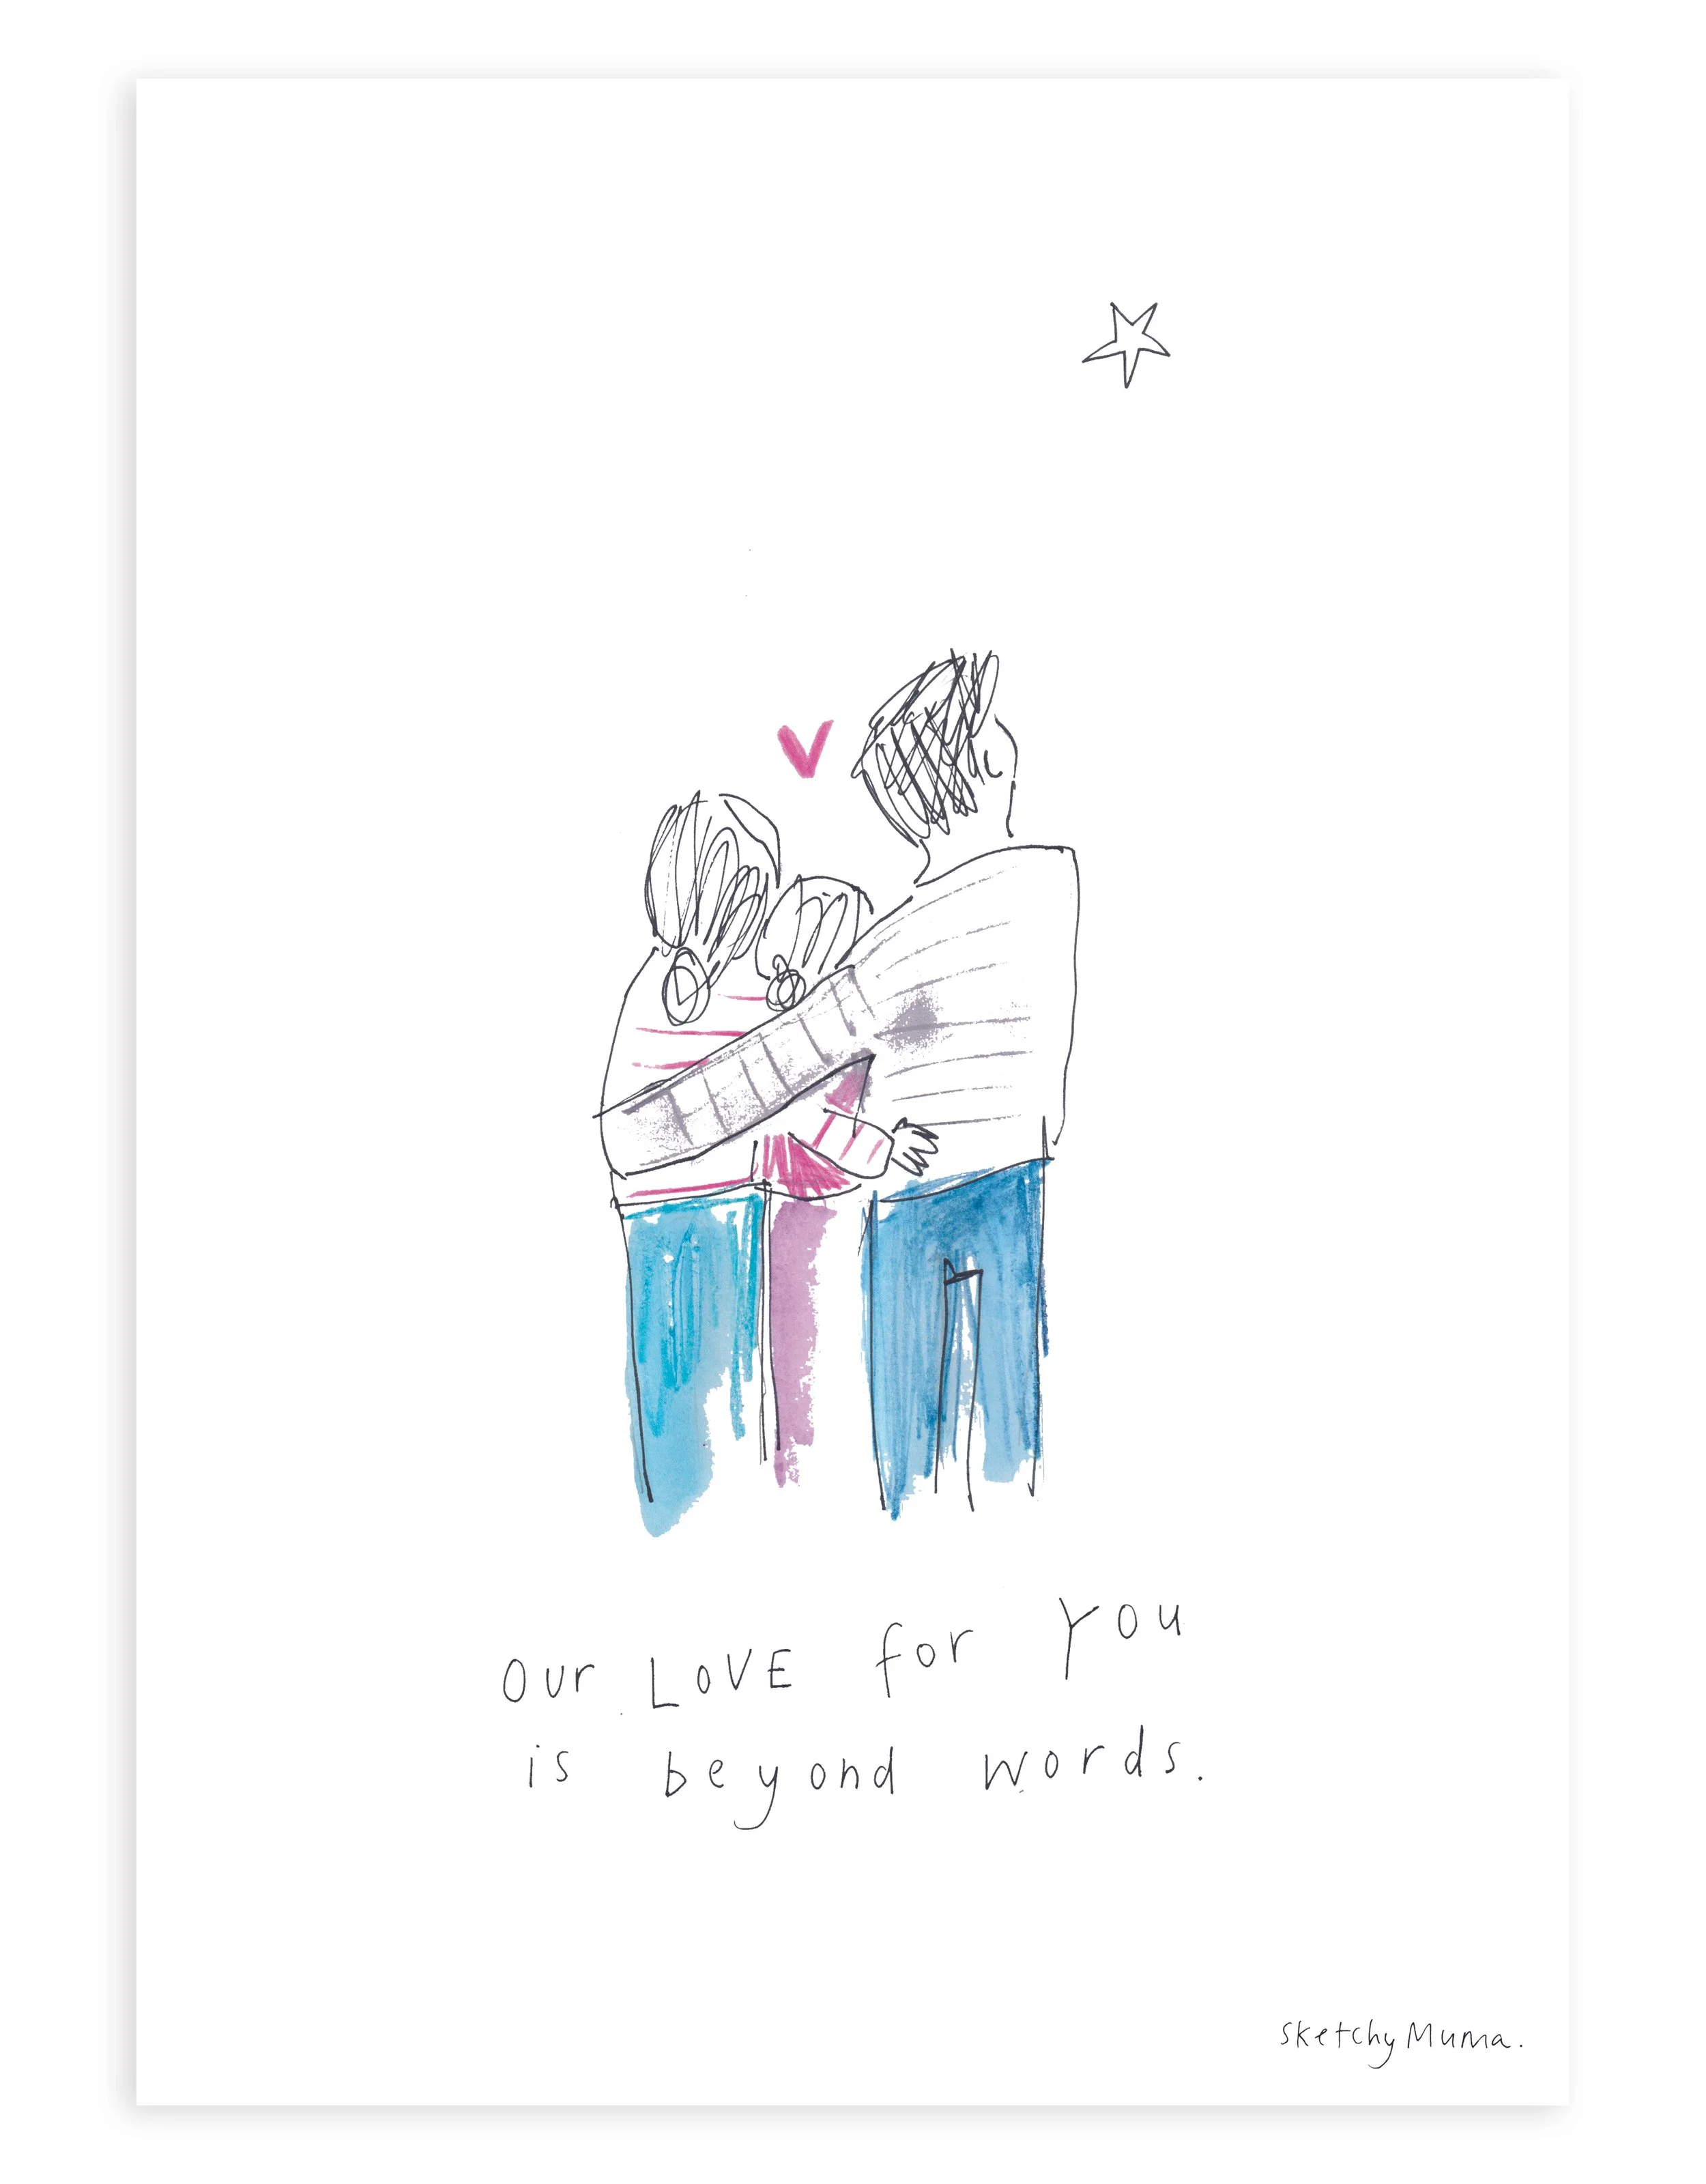 our LoVE for You
is beyond words.
sketchy Muma.